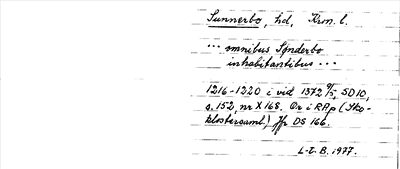 Sunnerbo, hd, Kron. l.
... omnibus Sønderbo
inhabitantibus ...
1216-1220 i vid 1372 9/5, SD10,
s. 152, nr X 168. Or i RAp (Sko-
klostersaml.) jfr DS 166.
L-E. B. 1977.